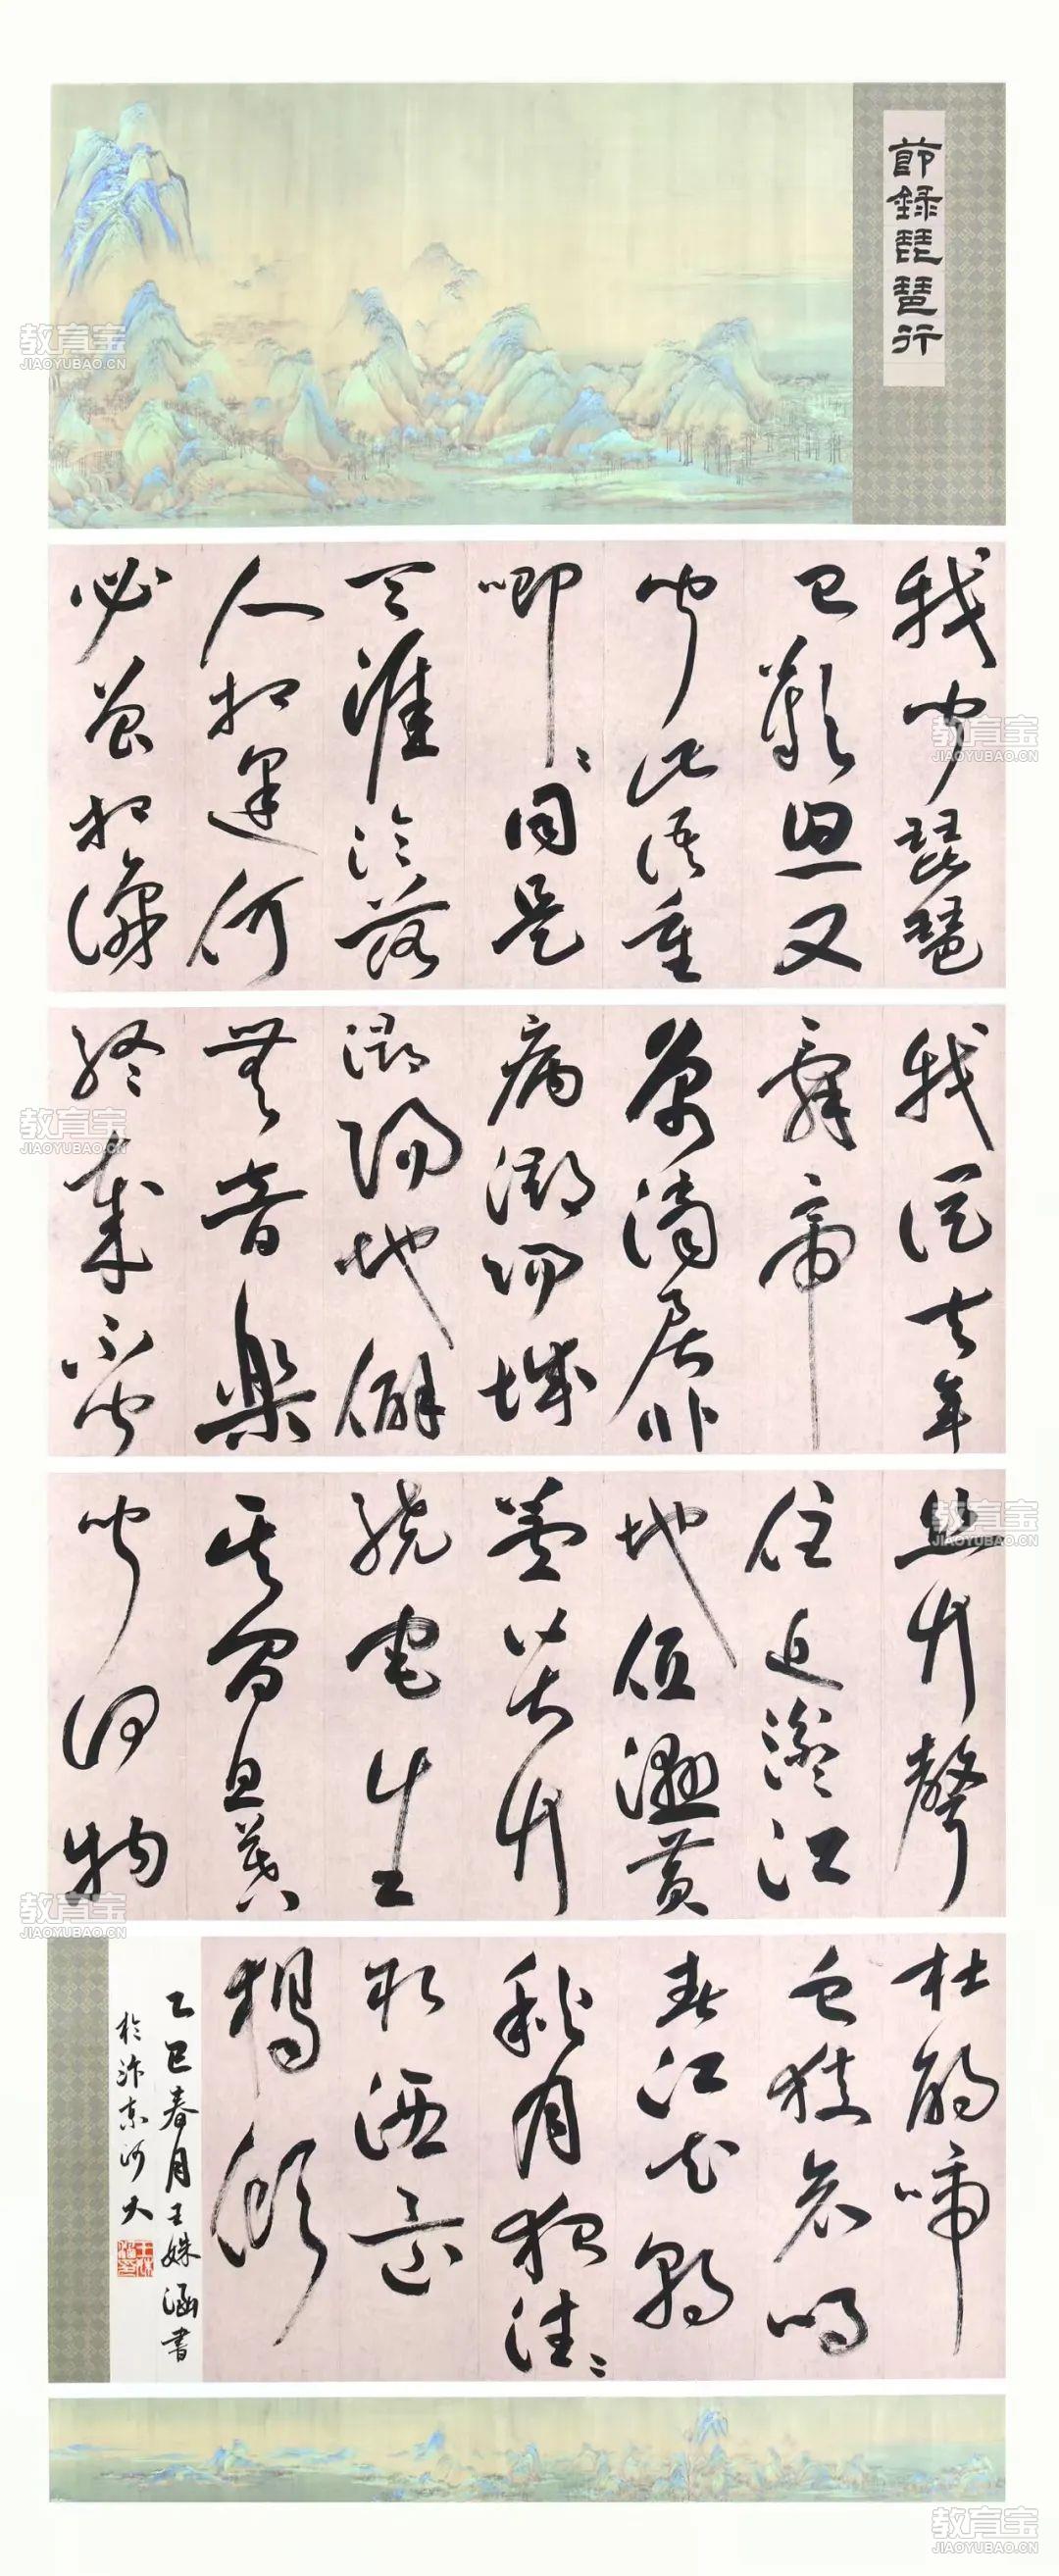 節錄琵琶行
我聞琵琶
已歎息又
聞此語重
唧〻同是
天涯淪落
人相逢何
必曾相識
我從去年
辭帝
京謫居卧
病潯陽城
潯陽地僻
無音樂
終歲不聞
絲竹聲
住近湓江
地低濕黃
蘆苦竹
繞宅生
其間旦暮
聞何物
杜鵑啼
血猿哀鳴
春江花朝
秋月夜往〻
取酒還
獨傾
乙巳春月王姝涵書
於汴京河大
教育宝
JIAOYUBAO.CN
教育宝
JIAOYUBAO.CN
教育宝
JIAOYUBAO.CN
教育宝
JIAOYUBAO.CN
教育宝
JIAOYUBAO.CN
教育宝
JIAOYUBAO.CN